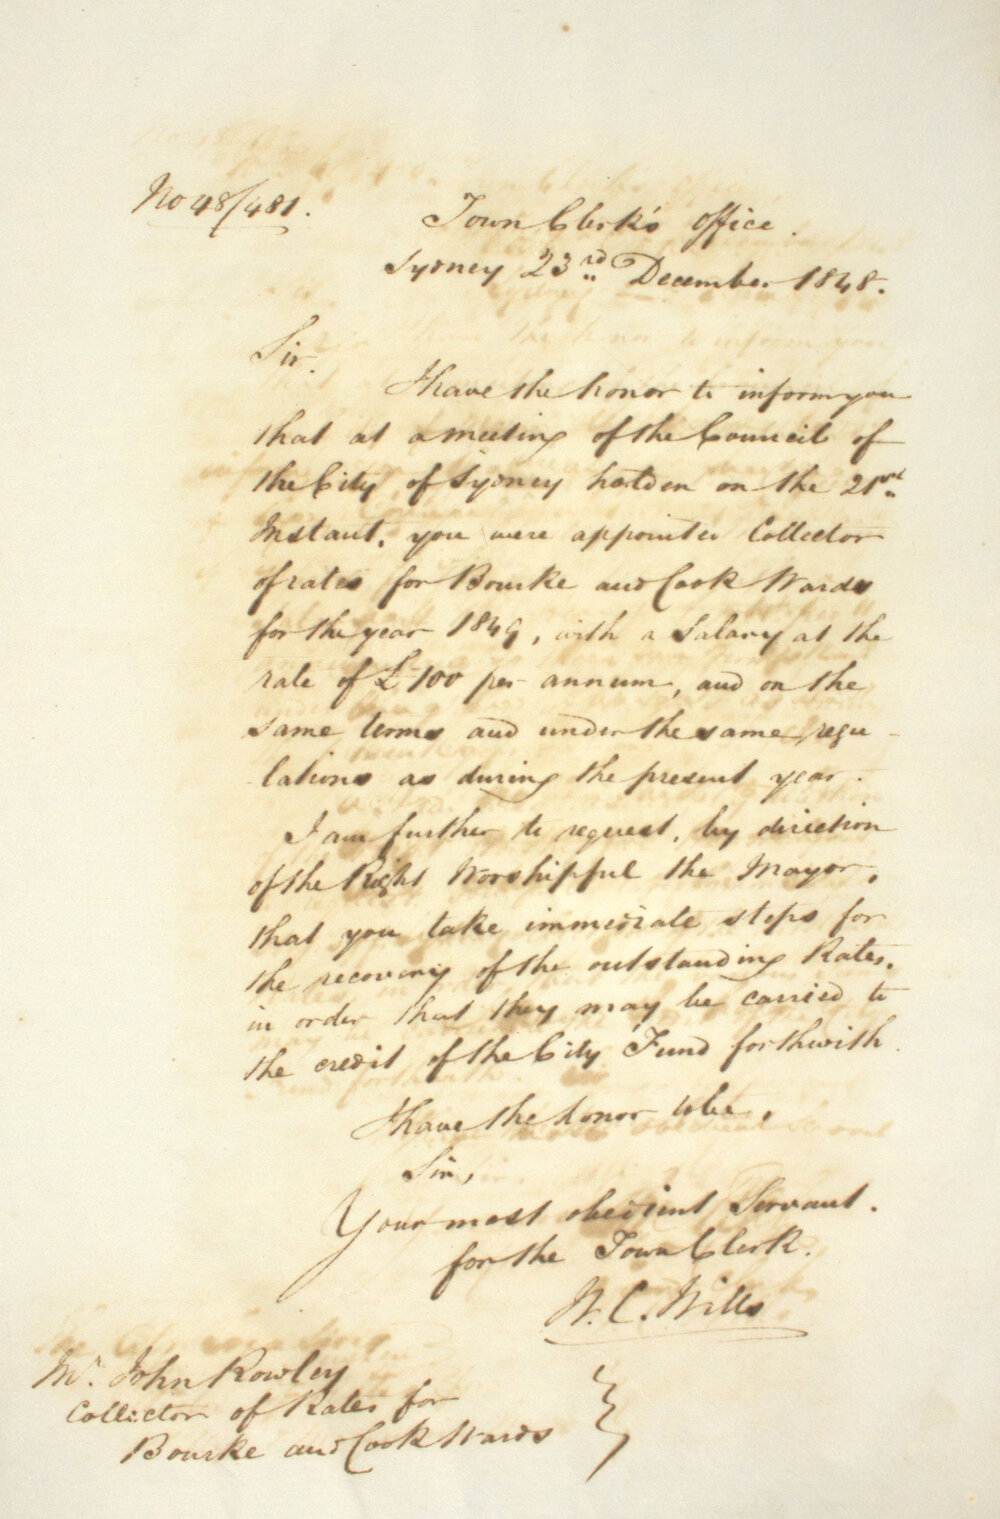 No 48/481.
Town Clerk's Office.
Sydney 23rd December 1848.
Sir.
I have the honor to inform you
that at a meeting of the Council of
the City of Sydney holden on the 21st
Instant, you were appointed Collector
of rates for Bourke and Cook Wards
for the year 1849, with a Salary at the
rate of £100 per annum, and on the
same terms and under the same regu-
-lations as during the present year.
I am further to request, by direction
of the Right Worshipful the Mayor,
that you take immediate steps for
the recovery of the outstanding Rates,
in order that they may be carried to
the credit of the City Fund forthwith.
I have the honor to be,
Sir,
Your most obedient Servant.
for the Town Clerk.
W. C. Wills
Mr. John Rowley
Collector of Rates for
Bourke and Cook Wards